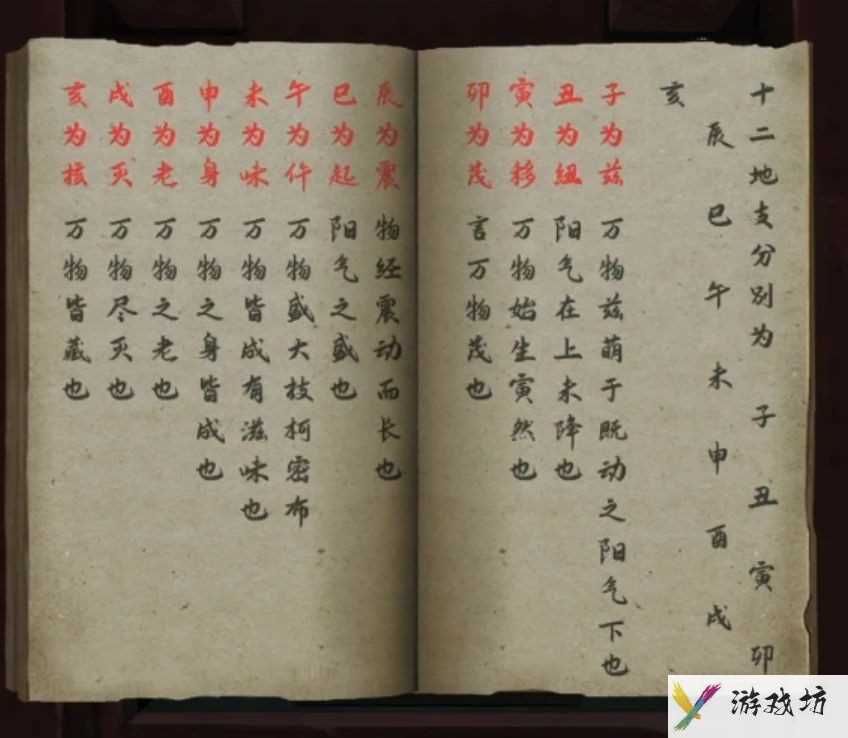 十二地支分别为 子 丑 寅 卯
辰 巳 午 未 申 酉 戌
亥
子为兹 万物兹萌于既动之阳气下也
丑为纽 阳气在上未降也
寅为移 万物始生寅然也
卯为茂 言万物茂也
辰为震 物经震动而长也
巳为起 阳气之盛也
午为仵 万物盛大枝柯密布
未为味 万物皆成有滋味也
申为身 万物之身皆成也
酉为老 万物之老也
戌为灭 万物尽灭也
亥为核 万物皆藏也
游戏坊